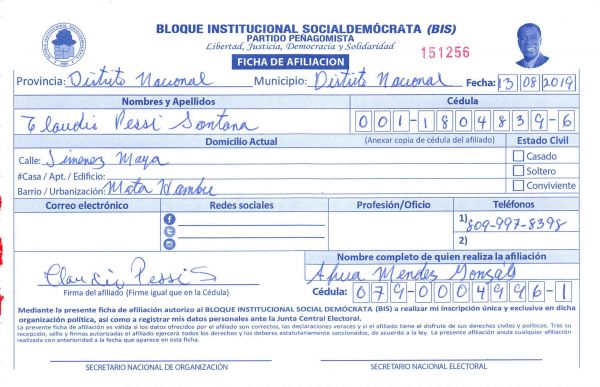 BLOQUE INSTITUCIONAL SOCIALDEMÓCRATA (BIS)
PARTIDO PEÑAGOMISTA
Libertad, Justicia, Democracia y Solidaridad
151256
FICHA DE AFILIACION
Provincia: Distrito Nacional Municipio: Distrito Nacional Fecha: 13 08 2019
Nombres y Apellidos Cédula
Claudio Pessi Santana 001-1804839-6
Domicilio Actual (Anexar copia de cédula del afiliado) Estado Civil
Calle: Jimenez Moya Casado
#Casa / Apt. / Edificio: Soltero
Barrio / Urbanización: Mata Hambre Conviviente
Correo electrónico Redes sociales Profesión/Oficio Teléfonos
1) 809-997-8398
2)
Nombre completo de quien realiza la afiliación
Claudio Pessi S Mendes
Firma del afiliado (Firme igual que en la Cédula) Cédula: 079-0004996-1
Mediante la presente ficha de afiliación autorizo al BLOQUE INSTITUCIONAL SOCIAL DEMÓCRATA (BIS) a realizar mi inscripción única y exclusiva en dicha
organización política, así como a registrar mis datos personales ante la Junta Central Electoral.
La presente ficha de afiliación es válida si los datos ofrecidos por el afiliado son correctos, las declaraciones veraces y si el afiliado tiene el disfrute de sus derechos civiles y políticos. Tras su
recepción, sello y firmas autorizadas el afiliado ejercerá todos los derechos y los deberes estatutariamente sancionados, de acuerdo a la ley. La presente afiliación anula cualquier afiliación
realizada con anterioridad a la fecha que aparece en esta ficha.
SECRETARIO NACIONAL DE ORGANIZACIÓN SECRETARIO NACIONAL ELECTORAL